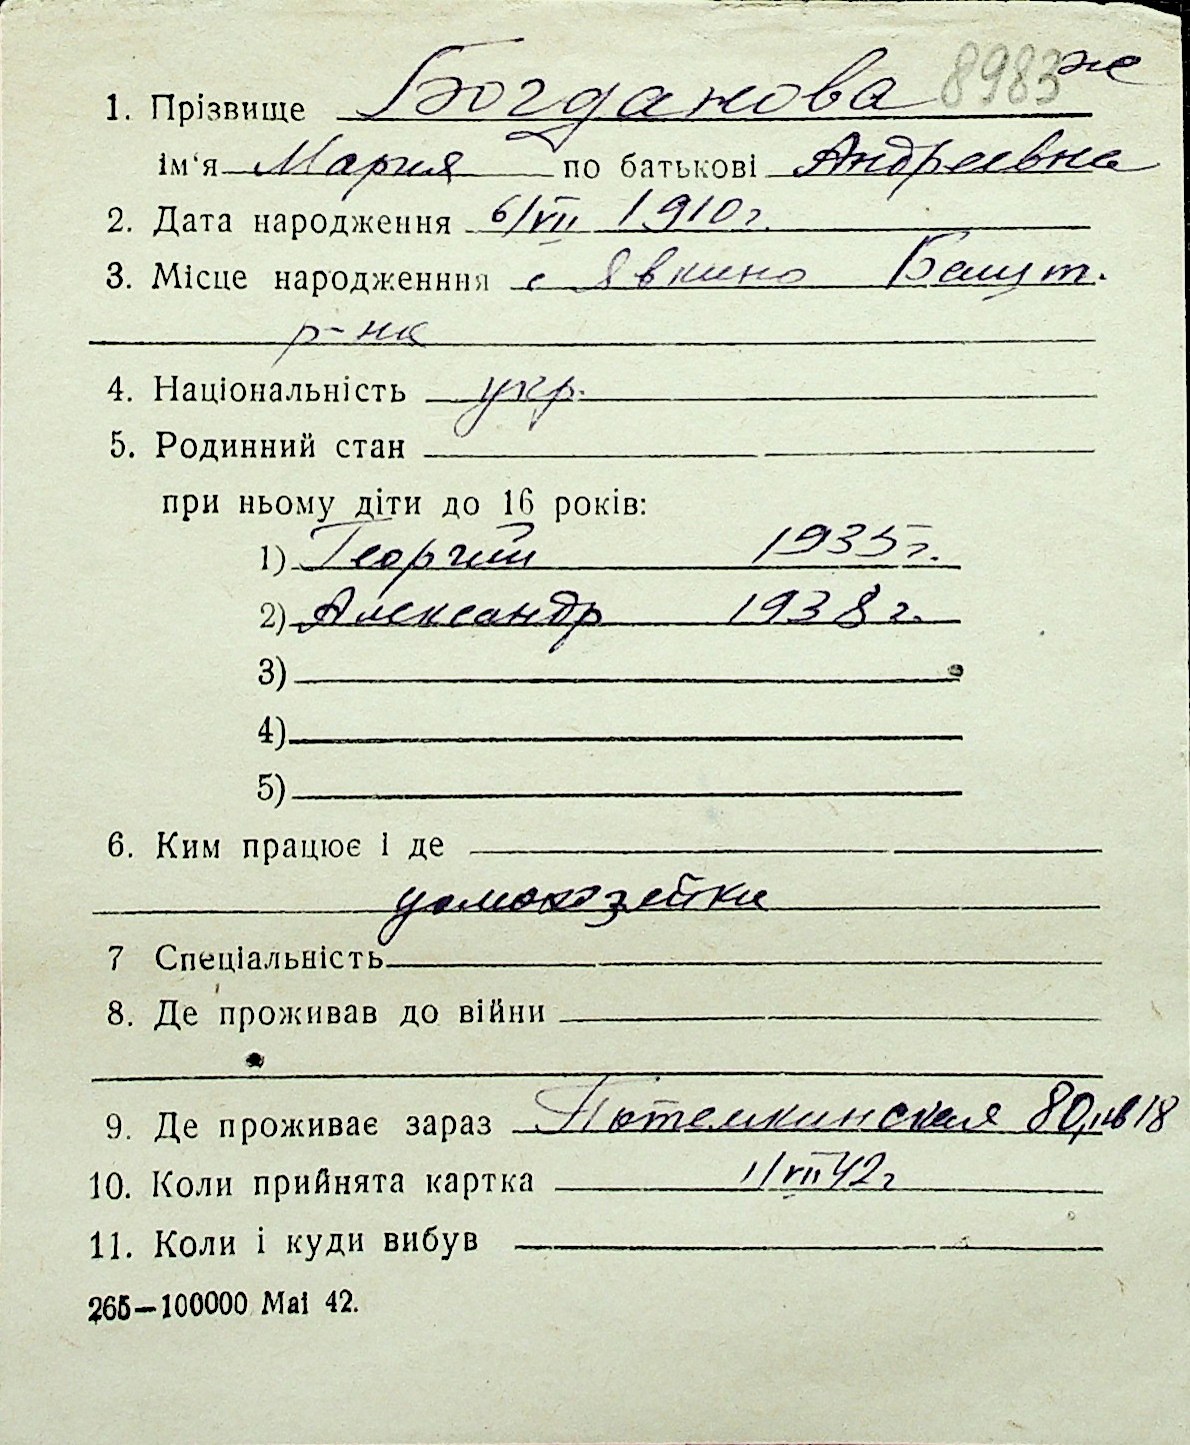 8983 же
1. Прізвище Богданова
ім'я Мария по батькові Андреевна
2. Дата народження 6/VII 1910 г.
3. Місце народженння с Явкино Башт.
р-на
4. Національність укр.
5. Родинний стан
при ньому діти до 16 років:
1) Георгий 1935 г.
2) Александр 1938 г.
3)
4)
5)
6. Ким працює і де
домохозяйка
7 Спеціальність
8. Де проживав до війни
9. Де проживає зараз Потемкинская 80, кв 18
10. Коли прийнята картка 1/VII 42 г
11. Коли і куди вибув
265—100000 Маі 42.